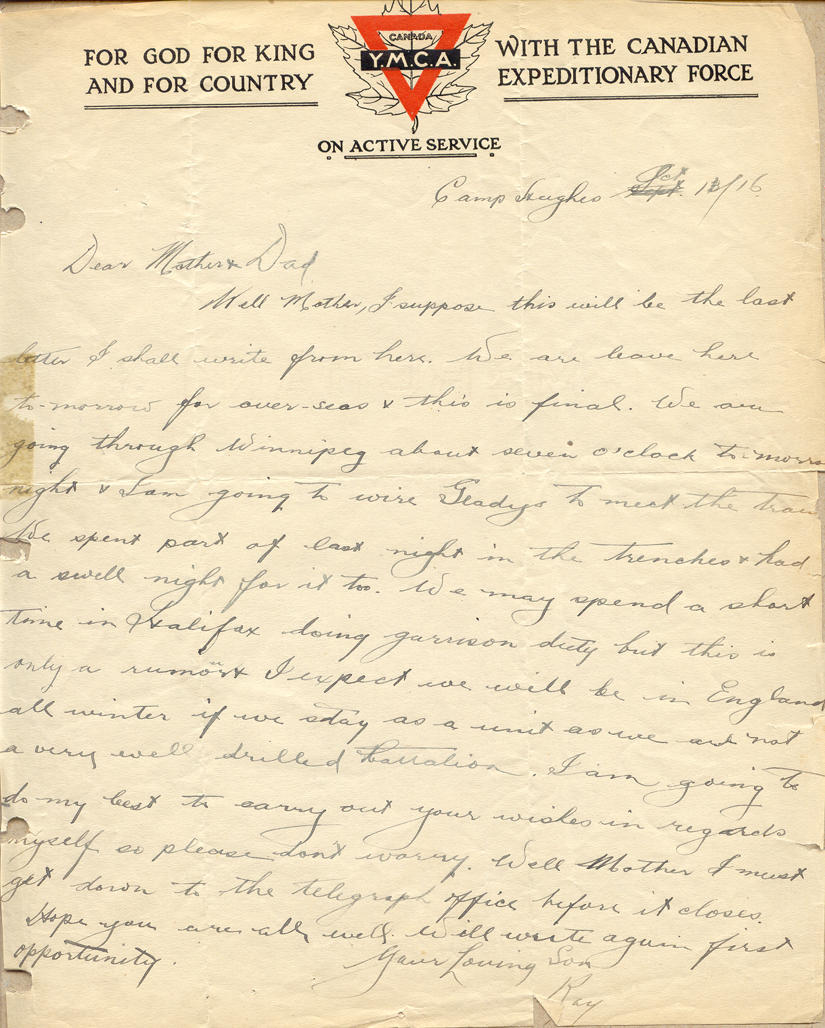 FOR GOD FOR KING
AND FOR COUNTRY
CANADA
Y.M.C.A.
WITH THE CANADIAN
EXPEDITIONARY FORCE
ON ACTIVE SERVICE
Camp Hughes Oct /16
Dear Mother & Dad
Well Mother, I suppose this will be the last
letter I shall write from here. We are leave here
to-morrow for over-seas & this is final. We are
going through Winnipeg about seven o'clock to-morro
night & I am going to wire Gladys to meet the train
We spent part of last night in the trenches & had
a swell night for it too. We may spend a short
time in Halifax doing garrison duty but this is
only a rumor & I expect we will be in England
all winter if we stay as a unit as we are not
a very well drilled battalion. I am going to
do my best to carry out your wishes in regards
myself so please don't worry. Well Mother I must
get down to the telegraph office before it closes.
Hope you are all well. Will write again first
opportunity.
Your Loving Son
Ray